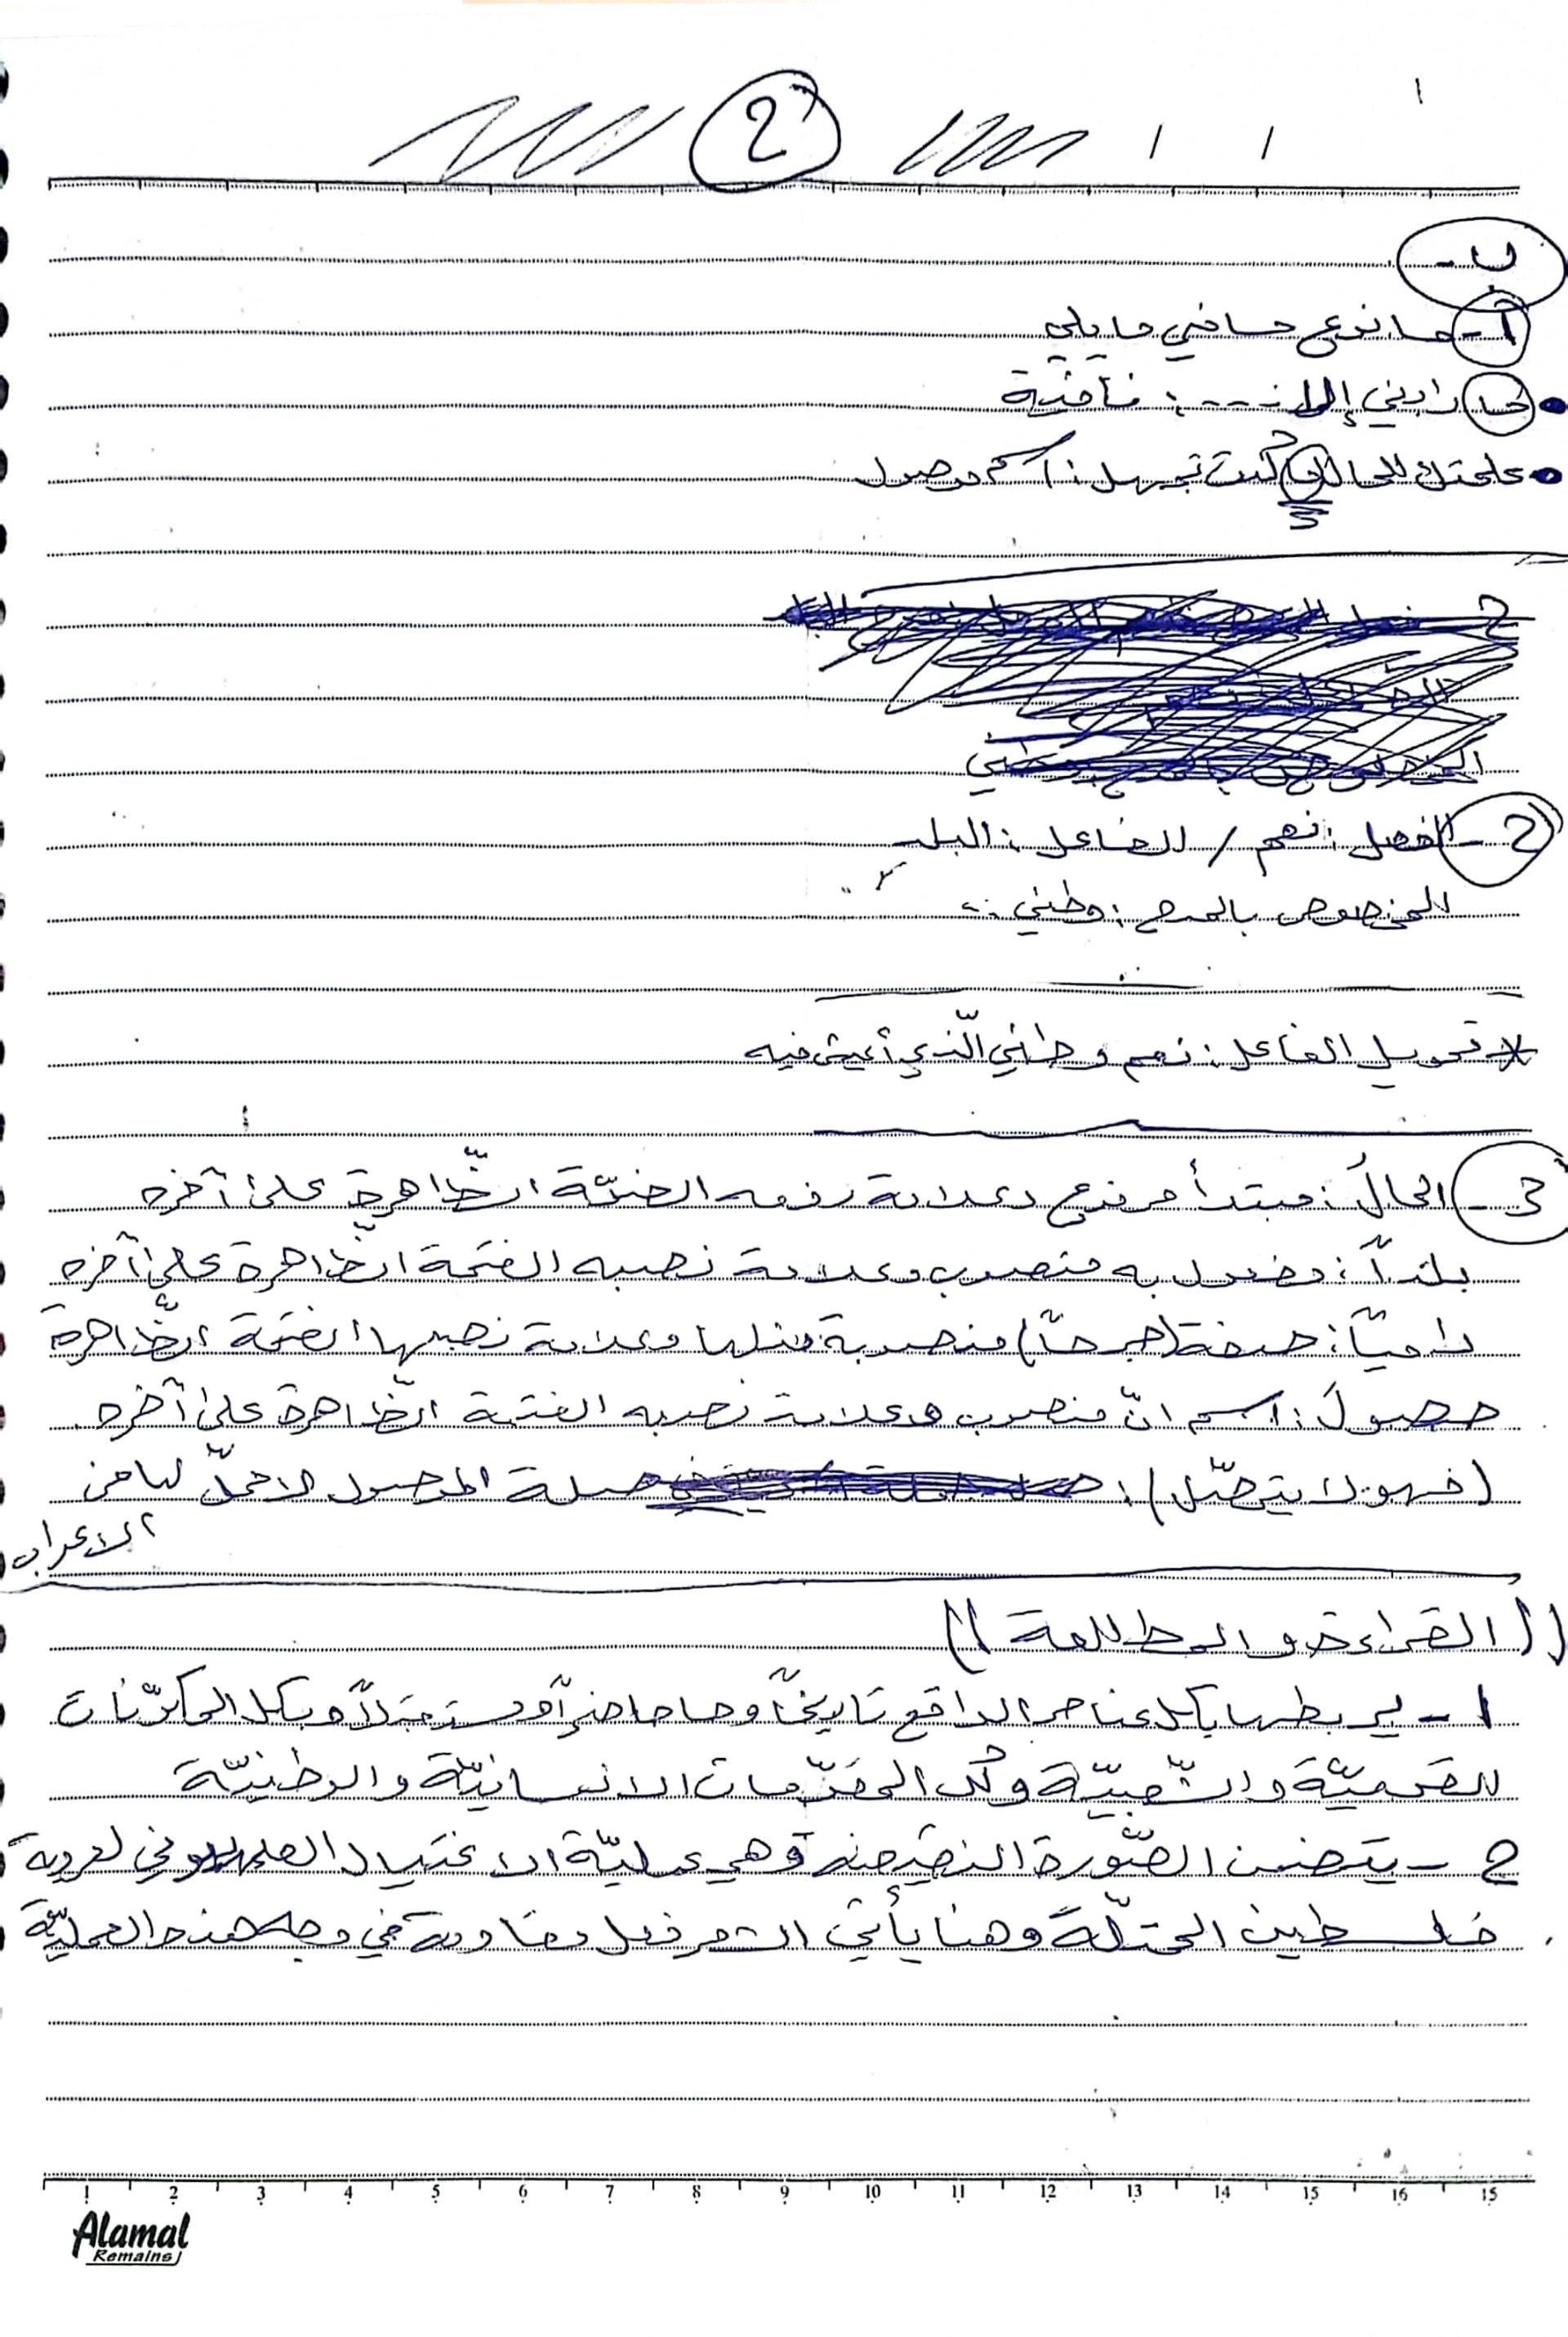 2
ب -
أ - ما نوع ما في ما يلي
• ما زادني إلا ...: نافية
• علمتك ما كنت تجهل: اسم موصول
2 - الفعل: نعم / الفاعل: البلد
المخصوص بالمدح: وطني
* تحويل الفاعل: نعم وطني الّذي أعيش فيه
3 - المالُ: مبتدأ مرفوع وعلامة رفعه الضمّة الظّاهرة على آخره
بلداً: مفعول به منصوب وعلامة نصبه الفتحة الظّاهرة على آخره
دامياً: صفة (جرحاً) منصوبة مثلها وعلامة نصبها الفتحة الظّاهرة
حصولَ: اسم انّ منصوب وعلامة نصبه الفتحة الظّاهرة على آخره
(فهو لا يتوصّل): صلة الموصول لا محلّ لها من
الاعراب
((القراءة و المطالعة))
1 - يربطها بكل عناصر الواقع تاريخاً وحاضراً ومستقبلاً وبكل المكوّنات
القوميّة والشّعبيّة وكل المقوّمات الانسانيّة والوطنيّة
2 - يتضمن الصّورة النقيضة وهي عمليّة الاغتيال الصهيوني لعروبة
فلسطين المحتلّة وهنا يأتي الشعر فعل مقاومة في وجه هذه العمليّة
1 2 3 4 5 6 7 8 9 10 11 12 13 14 15 16 15
Alamal
Remains